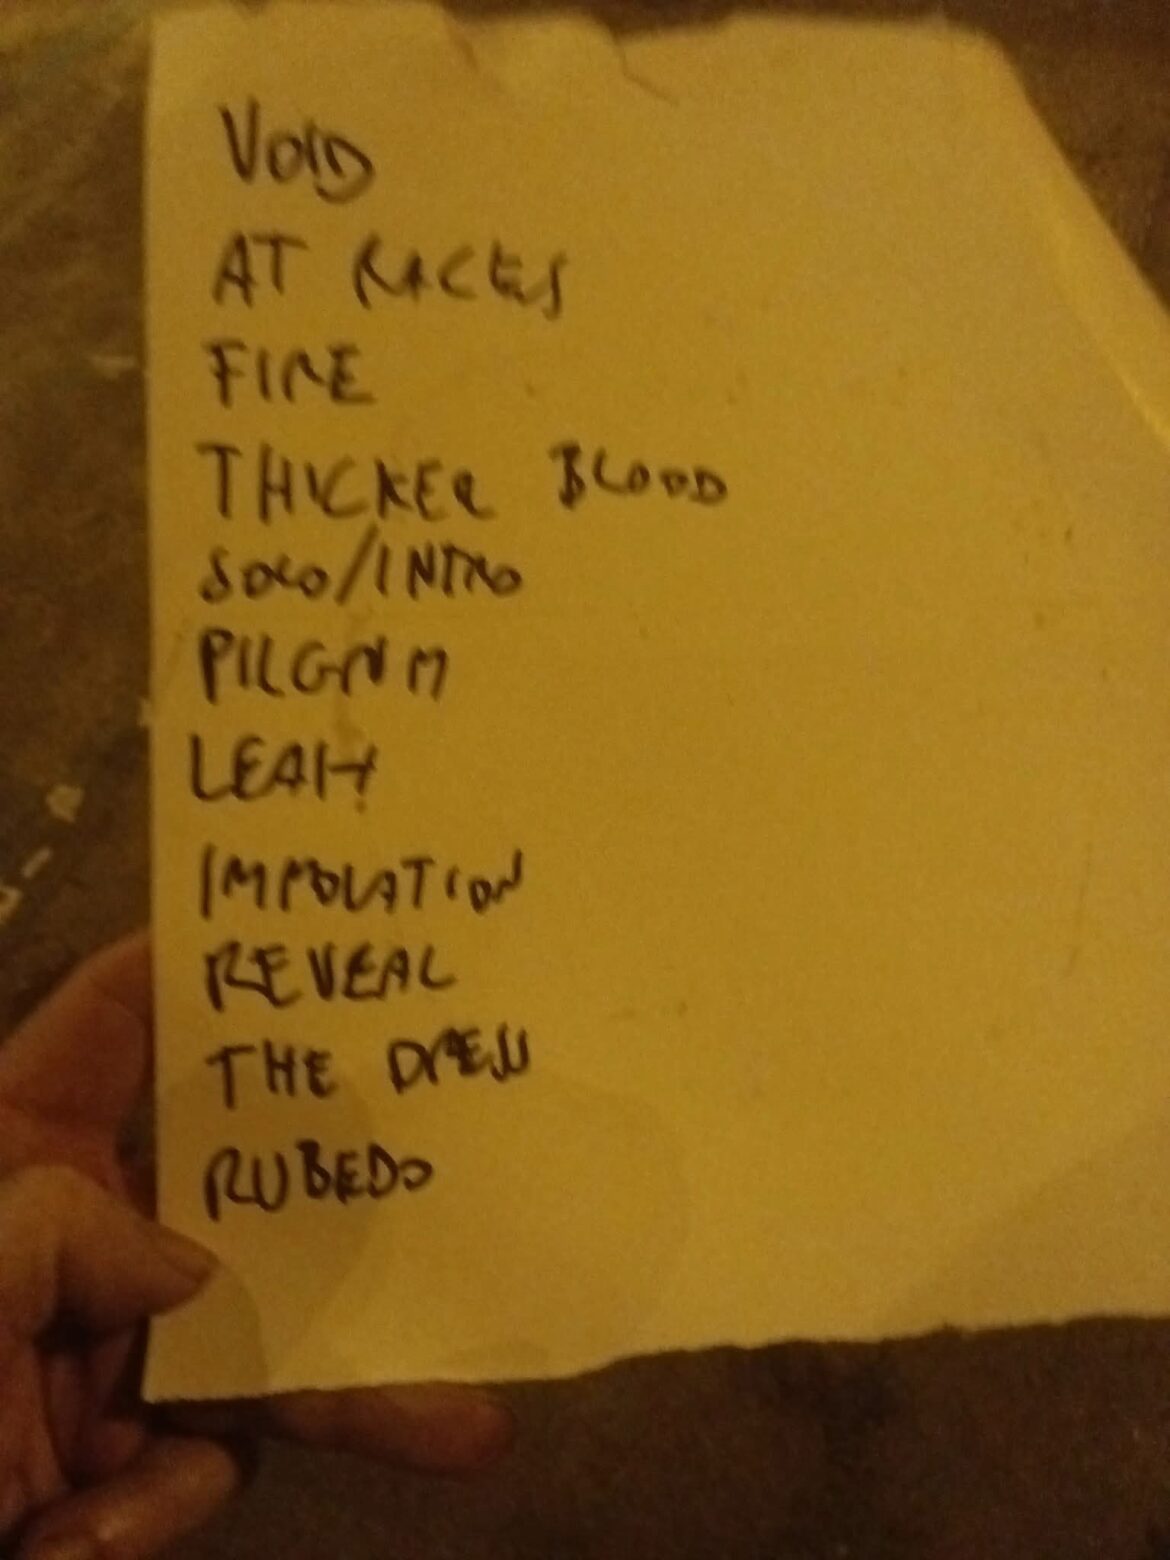 VOID
AT RACES
FIRE
THICKER BLOOD
SOLO/INTRO
PILGRIM
LEAH
IMPOLATION
REVEAL
THE DRESS
RUBEDO